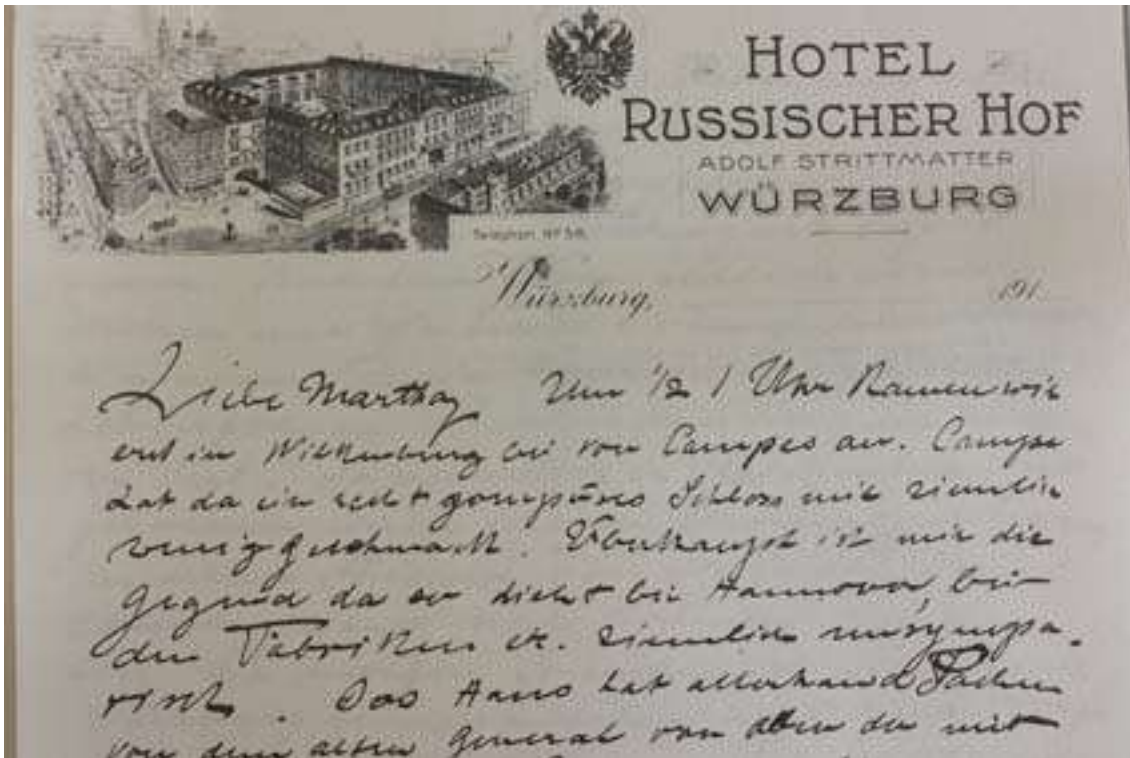 HOTEL
RUSSISCHER HOF
ADOLF STRITTMATTER
WÜRZBURG
Telephon Nº 56.
Würzburg, 191
Liebe Martha, Um 1/2 1 Uhr kamen wir
erst in Wilkenburg bei von Campes an. Campe
hat da ein recht pompöses Schloss mit ziemlich
wenig Geschmack. Überhaupt ist mir die
Gegend da so dicht bei Hannover, bei
den Fabriken etc. ziemlich unsympa-
tisch. Das Haus hat allerhand Sachen
von dem alten General von der mit